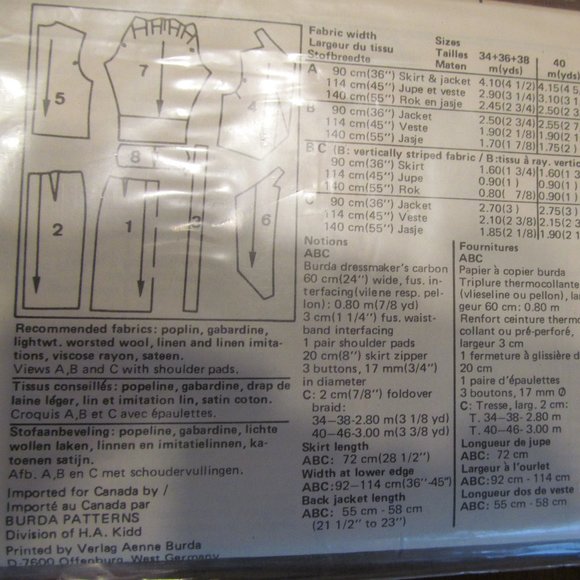 5
7
4
8
2
1
3
6
Recommended fabrics: poplin, gabardine,
lightwt. worsted wool, linen and linen imita-
tions, viscose rayon, sateen.
Views A,B and C with shoulder pads.
Tissus conseillés: popeline, gabardine, drap de
laine léger, lin et imitation lin, satin coton.
Croquis A,B et C avec épaulettes.
Stofaanbeveling: popeline, gabardine, lichte
wollen laken, linnen en imitatielinnen, ka-
toenen satijn.
Afb. A,B en C met schoudervullingen.
Imported for Canada by /
Importé au Canada par
BURDA PATTERNS
Division of H.A. Kidd
Printed by Verlag Aenne Burda
D-7600 Offenburg, West Germany
Fabric width
Largeur du tissu
Stofbreedte
Sizes
Tailles
Maten
34+36+38
m(yds)
40
m(yds)
A 90 cm(36") Skirt & jacket 4.10(4 1/2) 4.15(4 5
114 cm(45") Jupe et veste 2.90(3 1/4) 3.10(3
140 cm(55") Rok en jasje 2.45(2 3/4) 2.50(2
B 90 cm(36") Jacket 2.50(2 3/4) 2.55(2
114 cm(45") Veste 1.90(2 1/8) 1.90(2
140 cm(55") Jasje 1.70(1 7/8) 1.75(2
B C (B: vertically striped fabric / B:tissu à ray. vertic
90 cm(36") Skirt 1.60(1 3/4) 1.60(1
114 cm(45") Jupe 0.90(1 ) 0.90(1
140 cm(55") Rok 0.80( 7/8) 0.90(1
C 90 cm(36") Jacket 2.70(3 ) 2.75(3
114 cm(45") Veste 2.10(2 3/8) 2.15(2
140 cm(55") Jasje 1.85(2 1/8) 1.90(2
Notions
ABC
Burda dressmaker's carbon
60 cm(24") wide, fus. in-
terfacing(vilene resp. pel-
lon): 0.80 m(7/8 yd)
3 cm(1 1/4") fus. waist-
band interfacing
1 pair shoulder pads
20 cm(8") skirt zipper
3 buttons, 17 mm(3/4")
in diameter
C: 2 cm(7/8") foldover
braid:
34-38-2.80 m(3 1/8 yd)
40-46-3.00 m(3 3/8 yd)
Skirt length
ABC: 72 cm(28 1/2")
Width at lower edge
ABC:92-114 cm(36"-45")
Back jacket length
ABC: 55 cm - 58 cm
(21 1/2" to 23")
Fournitures
ABC
Papier à copier burda
Triplure thermocollante
(vlieseline ou pellon), lar-
geur 60 cm: 0.80 m
Renfort ceinture thermo-
collant ou pré-perforé,
largeur 3 cm
1 fermeture à glissière d
20 cm
1 paire d'épaulettes
3 boutons, 17 mm Ø
C: Tresse, larg. 2 cm:
T. 34-38- 2.80 m
T. 40-46- 3.00 m
Longueur de jupe
ABC: 72 cm
Largeur à l'ourlet
ABC: 92 cm - 114 cm
Longueur dos de veste
ABC: 55 cm - 58 cm